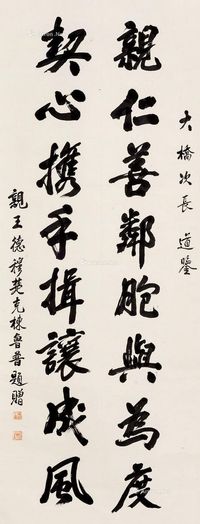 大橋次長 道鑒
親仁善鄰胞與為度
契心携手揖讓成風
親王德穆楚克棟魯普題贈